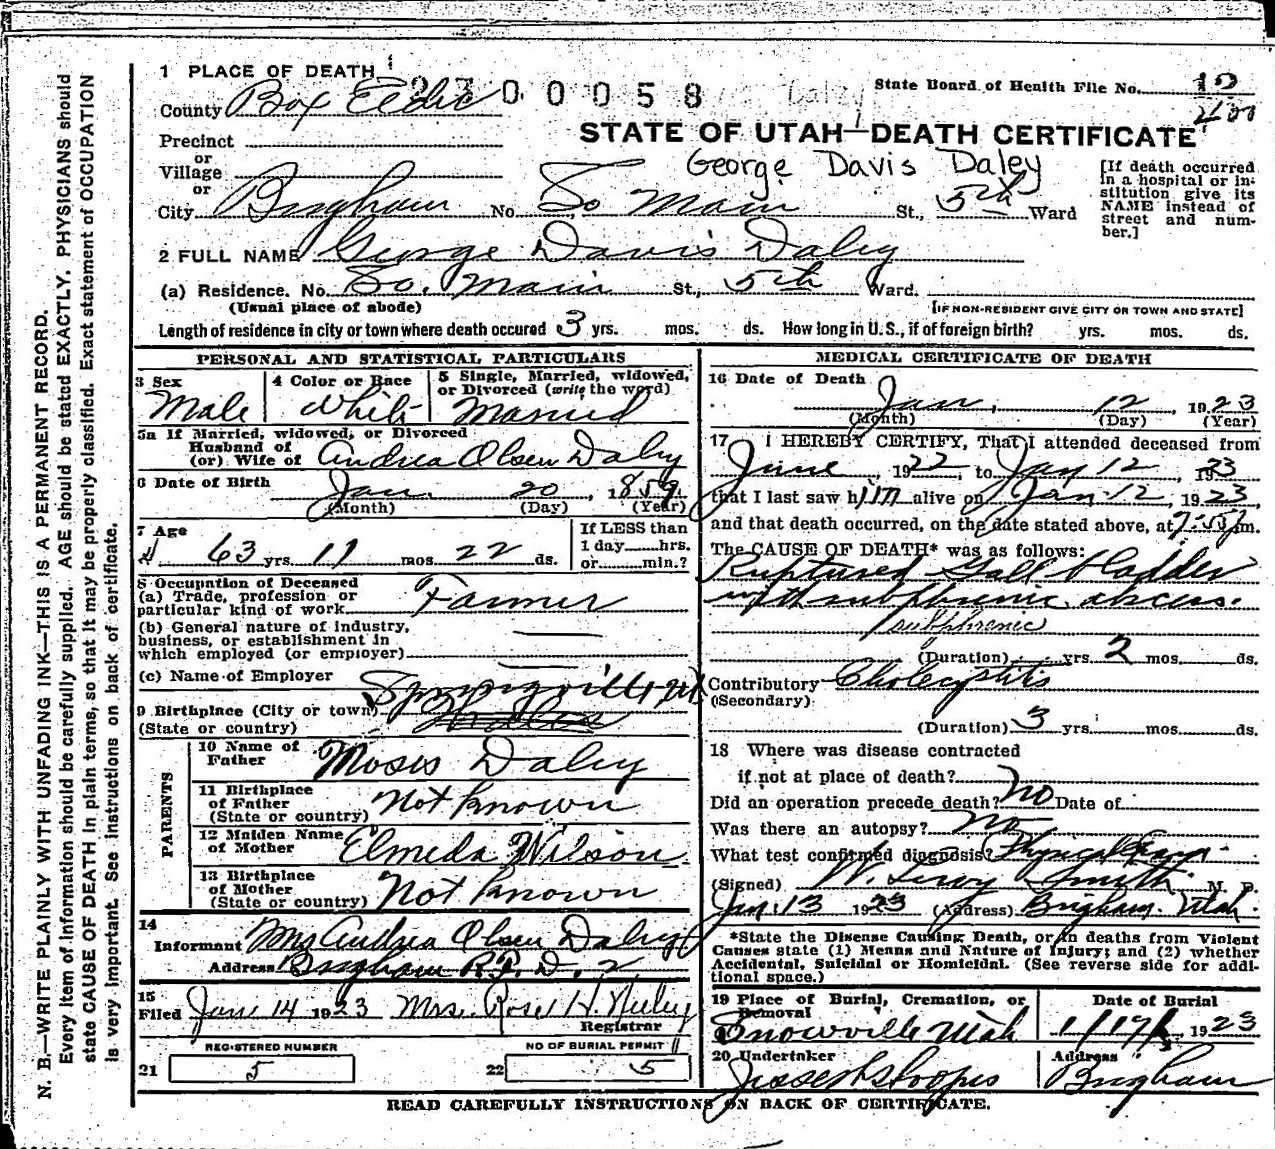 1 PLACE OF DEATH
2300058
State Board of Health File No. 12
400
County Box Elder
STATE OF UTAH—DEATH CERTIFICATE
Precinct
or
Village
George Davis Daley
or
City Brigham No. So Main St., 5th Ward
[If death occurred
in a hospital or in-
stitution give its
NAME instead of
street and num-
ber.]
2 FULL NAME George Davis Daley
(a) Residence. No. So. Main St., 5th Ward.
(Usual place of abode) [IF NON-RESIDENT GIVE CITY OR TOWN AND STATE]
Length of residence in city or town where death occured 3 yrs. mos. ds. How long in U. S., if of foreign birth? yrs. mos. ds.
PERSONAL AND STATISTICAL PARTICULARS
3 Sex
Male
4 Color or Race
White
5 Single, Married, widowed,
or Divorced (write the word)
Married
5a If Married, widowed, or Divorced
Husband of
(or) Wife of Andrea Olsen Daley
6 Date of Birth
Jan. 20, 1859.
(Month) (Day) (Year)
7 Age
63 yrs. 11 mos. 22 ds.
If LESS than
1 day hrs.
or min.?
8 Occupation of Deceased
(a) Trade, profession or
particular kind of work Farmer
(b) General nature of industry,
business, or establishment in
which employed (or employer)
(c) Name of Employer
Springville, Ut
9 Birthplace (City or town)
(State or country)
PARENTS
10 Name of
Father Moses Daley
11 Birthplace
of Father
(State or country) Not known
12 Maiden Name
of Mother Elmeda Wilson
13 Birthplace
of Mother
(State or country) Not known
14
Informant Mrs Andrea Olsen Daley
Address Brigham R.F.D. 2
15
Filed Jan 14 1923 Mrs. Rose H. Neeley
Registrar
REGISTERED NUMBER
21 5
NO OF BURIAL PERMIT
22 5
MEDICAL CERTIFICATE OF DEATH
16 Date of Death
Jan, 12, 1923
(Month) (Day) (Year)
17 I HEREBY CERTIFY, That I attended deceased from
June, 1922 to Jan 12, 1923
that I last saw him alive on Jan. 12, 1923,
and that death occurred, on the date stated above, at m.
The CAUSE OF DEATH* was as follows:
Ruptured Gall bladder
with subphrenic abscess.
subphrenic
(Duration) yrs. 2 mos. ds.
Contributory Cholecystitis
(Secondary)
(Duration) 3 yrs. mos. ds.
18 Where was disease contracted
if not at place of death?
Did an operation precede death? no Date of
Was there an autopsy? no
What test confirmed diagnosis? Physical Exam.
(Signed) W. Leroy Smith M. D.
Jan. 13 1923 (Address) Brigham. Utah.
*State the Disease Causing Death, or in deaths from Violent
Causes state (1) Means and Nature of Injury; and (2) whether
Accidental, Suicidal or Homicidal. (See reverse side for addi-
tional space.)
19 Place of Burial, Cremation, or
Removal
Snowville Utah
Date of Burial
1/17/ 1923
20 Undertaker
Address
Brigham
READ CAREFULLY INSTRUCTIONS ON BACK OF CERTIFICATE.
N. B.—WRITE PLAINLY WITH UNFADING INK—THIS IS A PERMANENT RECORD.
Every item of information should be carefully supplied. AGE should be stated EXACTLY. PHYSICIANS should
state CAUSE OF DEATH in plain terms, so that it may be properly classified. Exact statement of OCCUPATION
is very important. See instructions on back of certificate.